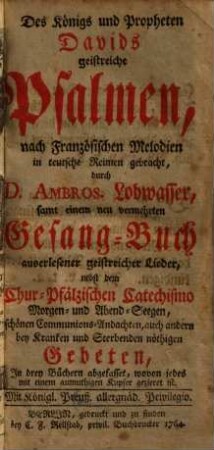 Des Königs und Propheten
Davids
geistreiche
Psalmen,
nach Französischen Melodien
in teutsche Reimen gebracht,
durch
D. AMBROS. Lobwasser,
samt einem neu vermehrten
Gesang-Buch
auserlesener geistreicher Lieder,
nebst dem
Chur-Pfältzischen Catechismo
Morgen- und Abend-Seegen,
schönen Communions-Andachten, auch andern
bey Kranken und Sterbenden nöthigen
Gebeten,
In drey Büchern abgefasset, wovon jedes
mit einem anmuthigen Kupfer gezieret ist.
Mit Königl. Preuß. allergnäd. Privilegio.
BERLIN, gedruckt und zu finden
bey C. F. Rellstab, privil. Buchdrucker 1764.